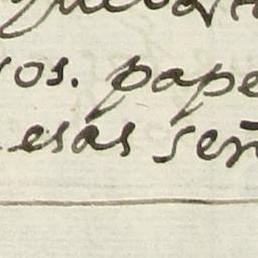 os. pape
esas señ